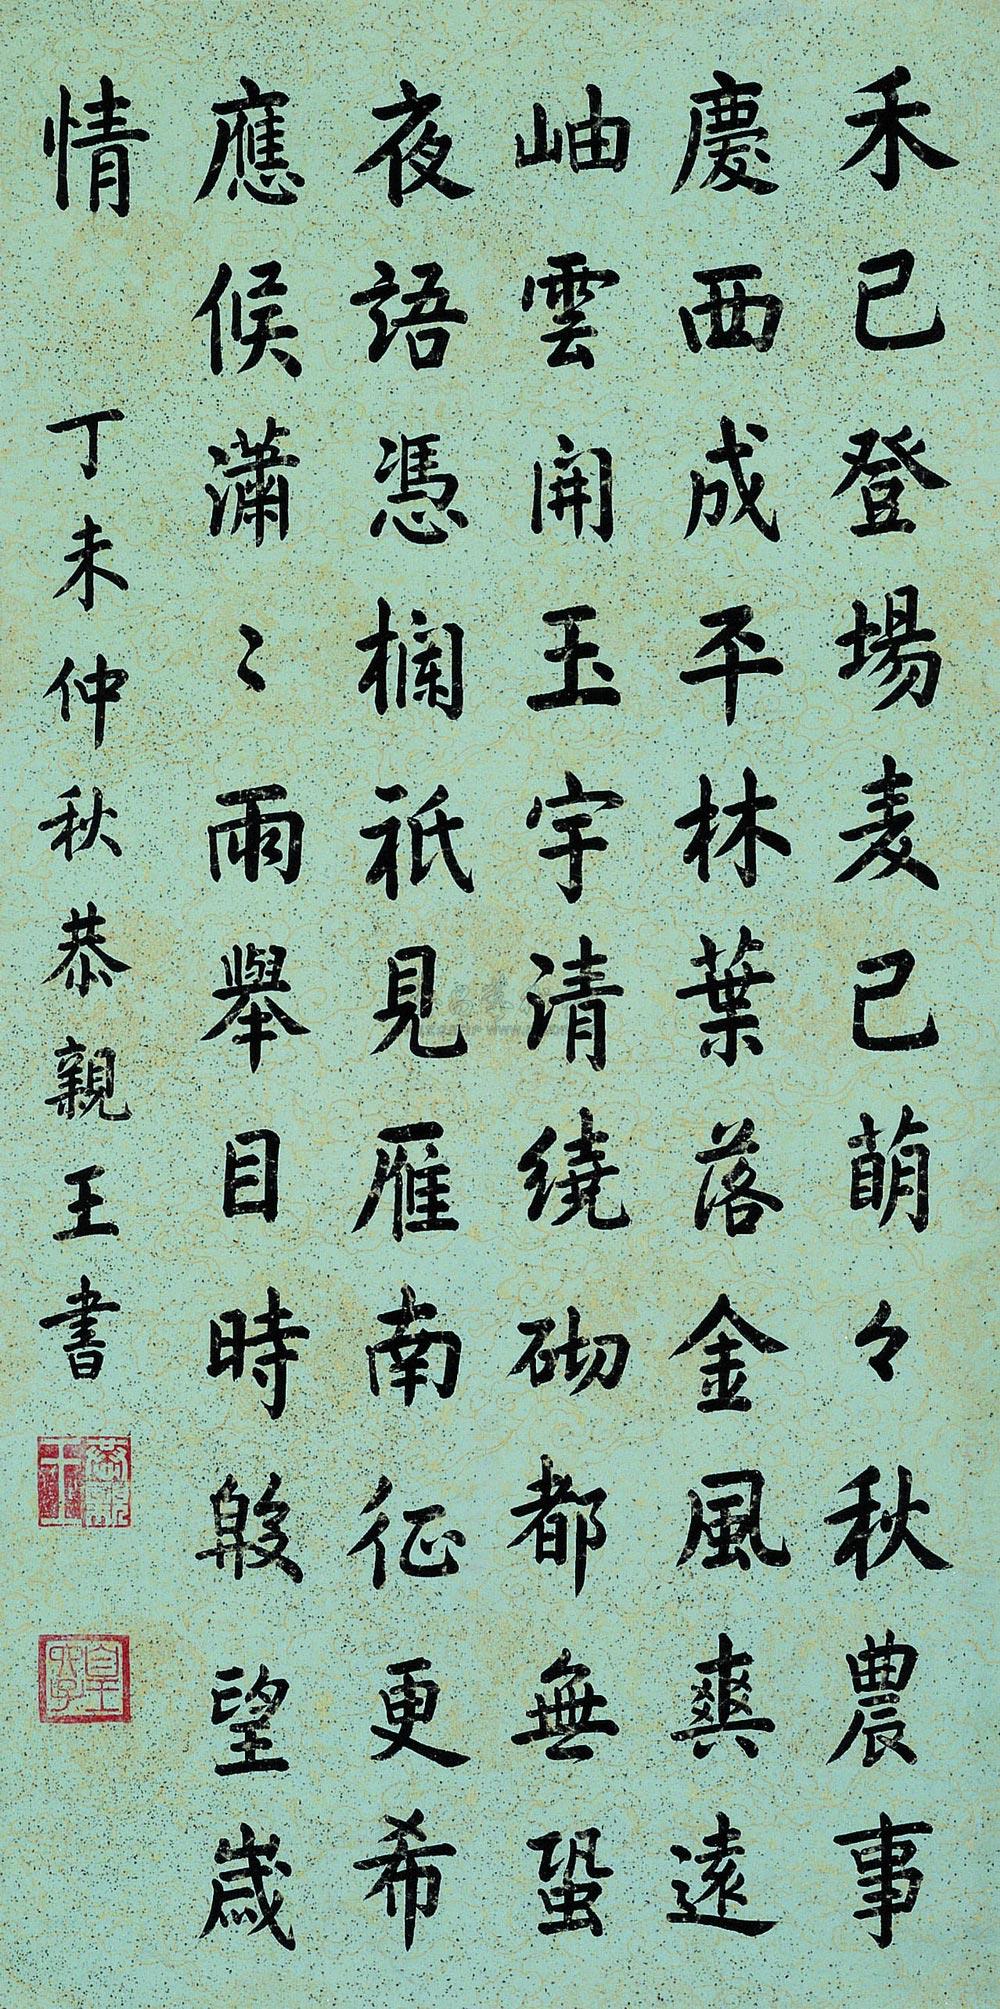 禾已登場麦已萌々秋農事
慶西成平林葉落金風爽遠
岫雲開玉宇清繞砌都無蛩
夜語憑欄祇見雁南征更希
應候瀟〻雨舉目時殷望歲
情
丁未仲秋恭親王書
恭親王
皇六子